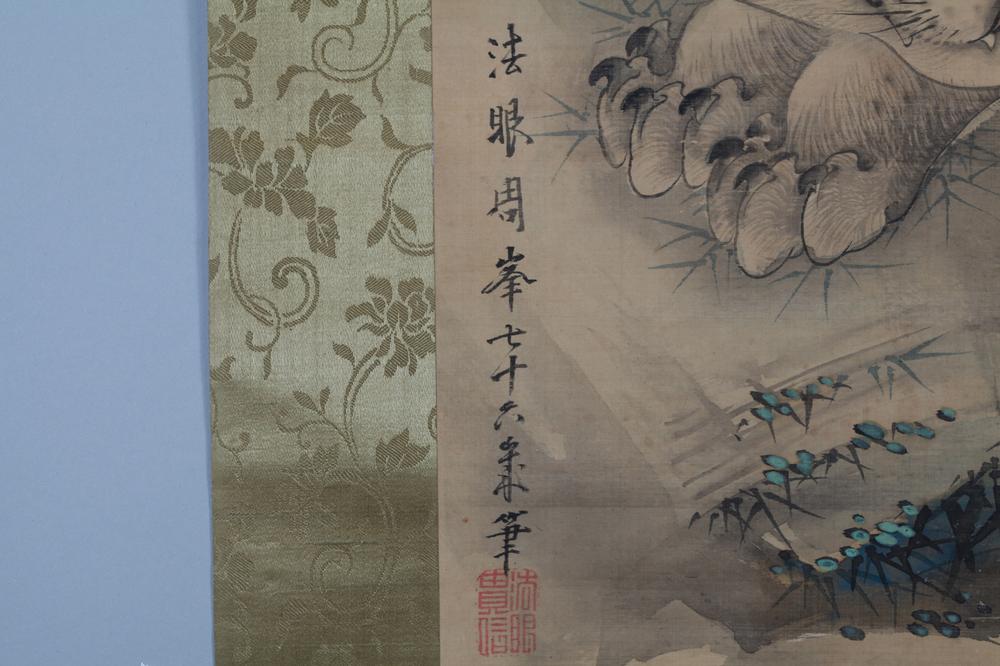 法眼周峯七十六歳筆
法眼貴信